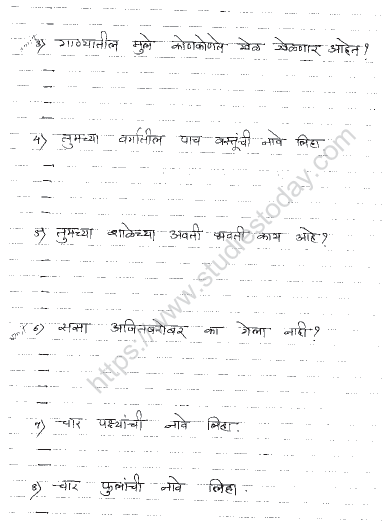 ३) गाण्यातील मुले कोणकोणते खेळ खेळणार आहेत?
४) तुमच्या वर्गातील पाच वस्तूंची नावे लिहा
५) तुमच्या शाळेच्या अवती भवती काय आहे?
६) ससा अजितबरोबर का गेला नाही?
७) चार पक्ष्यांची नावे लिहा.
८) चार फुलांची नावे लिहा.
https://www.studiestoday.com